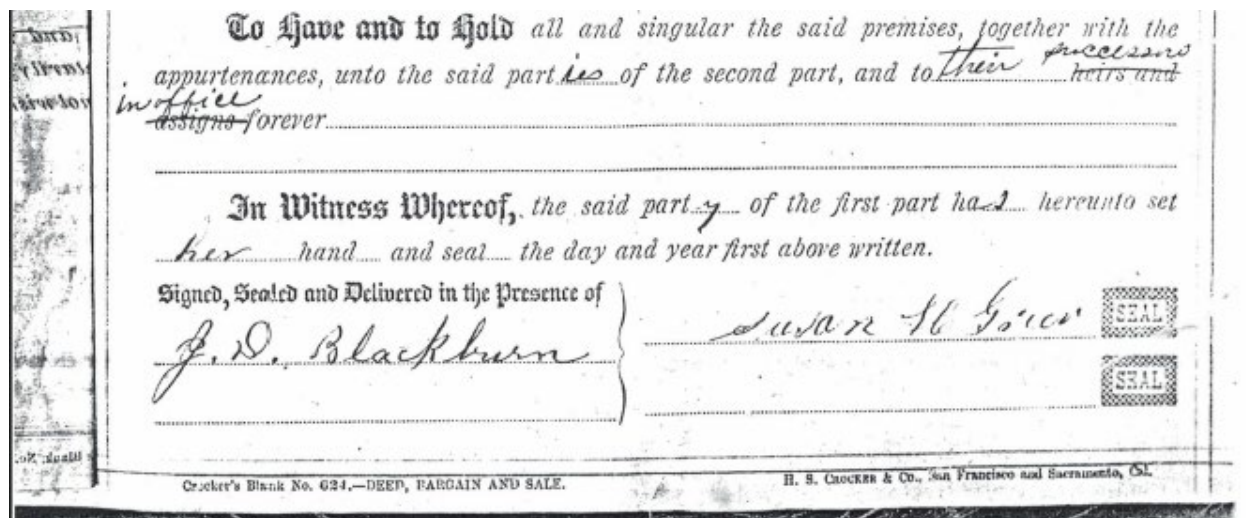 To Have and to Hold all and singular the said premises, together with the
successors
appurtenances, unto the said part ies of the second part, and to their heirs and
in office
assigns forever
In Witness Whereof, the said part y of the first part has hereunto set
her hand and seal the day and year first above written.
Signed, Sealed and Delivered in the Presence of
J. D. Blackburn
Susan H SEAL
SEAL
Crocker's Blank No. 624.—DEED, BARGAIN AND SALE.
H. S. CROCKER & Co., San Francisco and Sacramento, Cal.